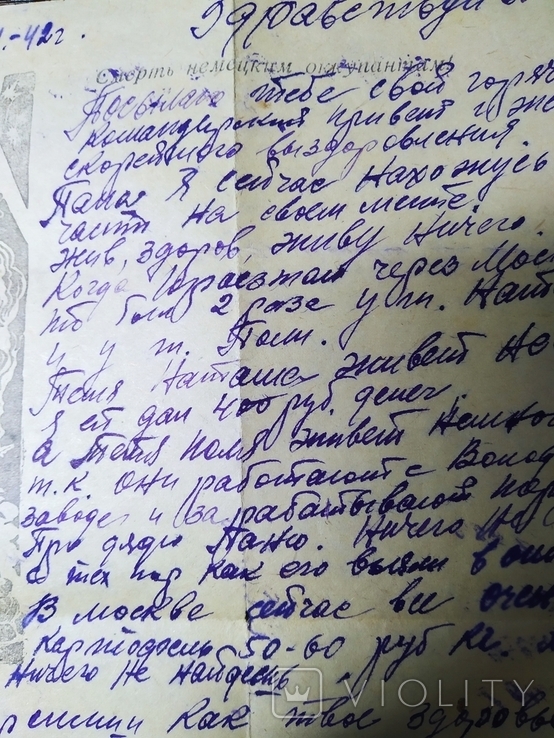 1.-42г. Здравствуй
Смерть немецким оккупантам!
Посылаю тебе свой горяч
командирский привет и же
скорейшего выздоровления.
Паня я сейчас нахожусь
части на своем месте.
жив, здоров, живу ничего.
Когда проезжал через Мос
то был 2 раза у т. Нат
и у т. Поли.
Тетя Наташа живет не
я ей дал 400 руб. денег.
а тетя Поля живет немног
т.к. они работают с Волод
заводе и зарабатывают пор
Про дядю Паню. Ничего не
с тех пор как его взяли в
В москве сейчас все очен
картофель 50-60 руб кг.
ничего не найдешь.
как твое здоровь
VIOLITY